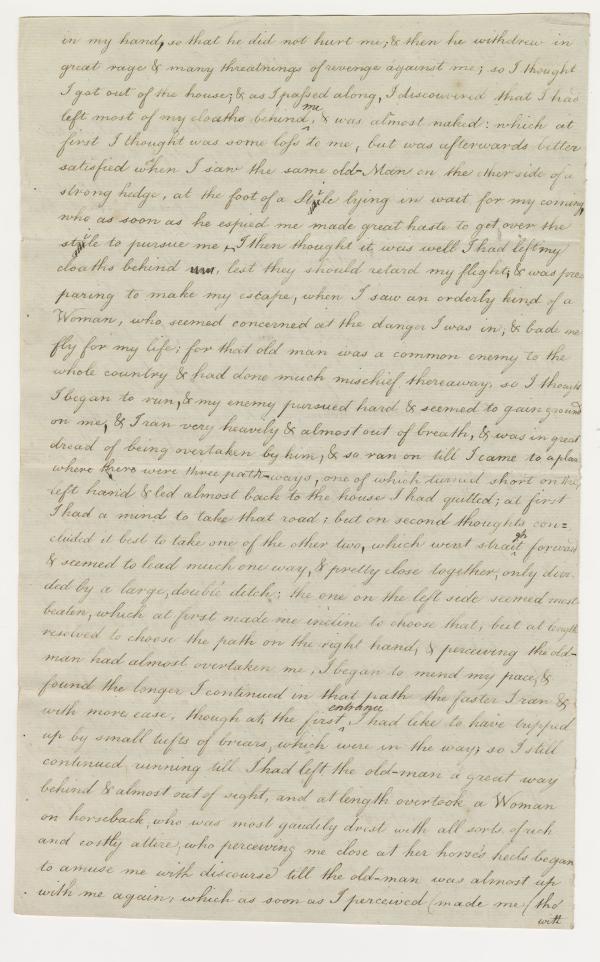 in my hand, so that he did not hurt me; & then he withdrew in
great rage & many threatnings of revenge against me; so I thought
I got out of the house; & as I passed along, I discovered that I had
left most of my cloaths behind me, & was almost naked: which at
first I thought was some loss to me, but was afterwards better
satisfied when I saw the same old-Man on the other side of a
strong hedge, at the foot of a Stile lying in wait for my coming,
who as soon as he espied me made great haste to get over the
stile to pursue me I then thought it was well I had left my
cloaths behind, lest they should retard my flight; & was pre-
paring to make my escape, when I saw an orderly kind of a
Woman, who seemed concerned at the danger I was in; & bade me
fly for my life; for that old man was a common enemy to the
whole country & had done much mischief thereaway, so I thought
I began to run, & my enemy pursued hard & seemed to gain ground
on me, & I ran very heavely & almost out of breath, & was in great
dread of being overtaken by him, & so ran on till I came to a place
where there were three path-ways, one of which turned short on the
left hand & led almost back to the house I had quitted; at first
I had a mind to take that road; but on second thoughts con=
cluded it best to take one of the other two, which went straight forward
& seemed to lead much one way, & pretty close together, only divi-
ded by a large, double ditch; the one on the left side seemed most
beaten, which at first made me incline to choose that, but at length
resolved to choose the path on the right hand, & perceiving the old-
man had almost overtaken me, I began to mind my pace, &
found the longer I continued in that path the faster I ran &
with more ease, though at the first entrance I had like to have tripped
up by small tufts of briars, which were in the way; so I still
continued running till I had left the old-man a great way
behind & almost out of sight, and at length overtook a Woman
on horseback, who was most gaudily drest with all sorts of rich
and costly attire, who perceiving me close at her horse's heels began
to amuse me with discourse till the old-man was almost up
with me again; which as soon as I perceived (made me (tho'
with